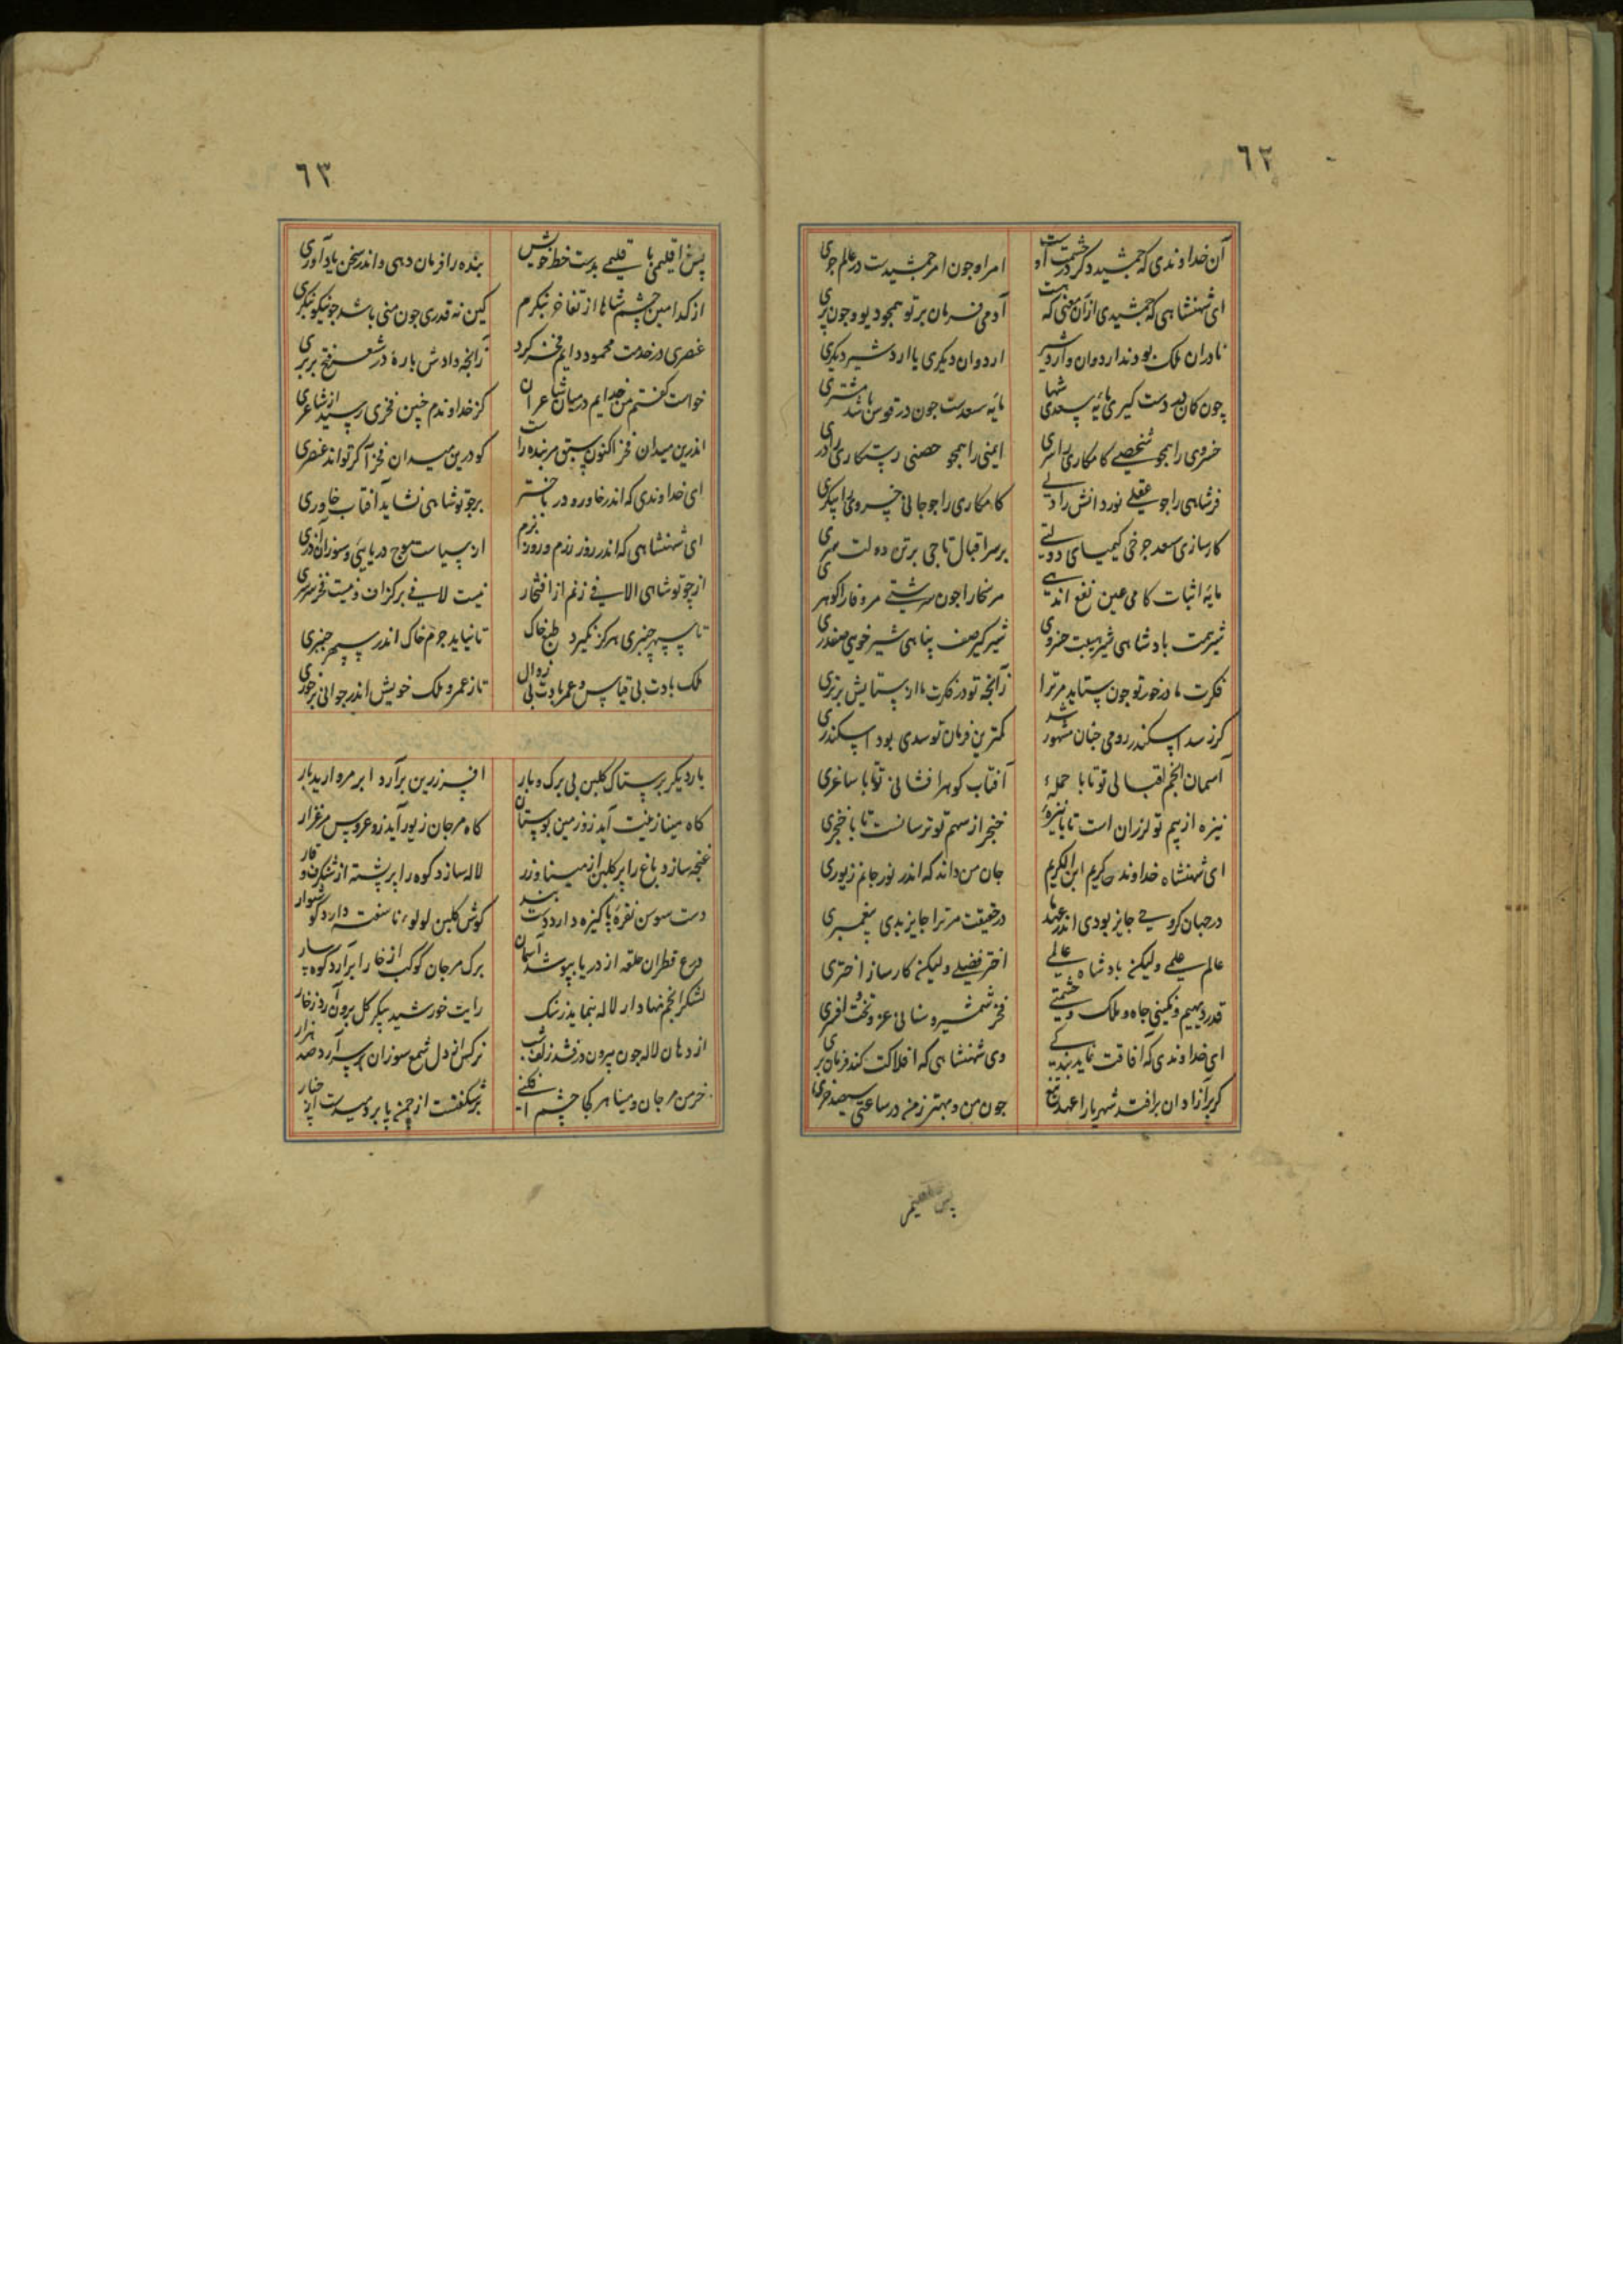 ٦٢
آن خداوندی که جمشید دگر در حشمت است او
امر او چون امر جمشیدست در عالم جری
ای شهنشاهی که جمشیدی از آن معنی که هست
آدمی فرمان بر تو همچو دیو و چون پری
نادران ملک بودند اردوان و اردشیر
اردوان دیکری یا اردشیر دیکری
چون کمان در دست کیری مایه سعدی شها
مایه سعدست چون در قوس باشد مشتری
خسروی را همچو شخصی کامکاری را سری
ایمنی را همچو حصنی رستکاری را دری
فر شاهی را چو عقلی نور دانش را دلی
کامکاری را چو جانی خسروی را پیکری
کارسازی سعد چرخی کیمیای دولتی
بر سر اقبال تاجی بر تن دولت سری
مایه اثبات کامی عین نفع اندهی
مر سخا را چون سرشتی مر وفا را کوهری
شیر همت پادشاهی شیر هیبت خسروی
شیر کیر صف پناهی شیر خوی صفدری
فکرت ما در خور تو چون ستاید مر ترا
زآنچه تو در فکرت ما از ستایش برتری
کر ز سد اسکندر رومی چنان مشهور شد
کمترین فرمان تو سدی بود اسکندری
آسمان انجم اقبالی تو تا با حمله‌ء
آفتاب کوهر افشانی تو تا با ساغری
نیزه از بیم تو لرزان است تا با نیزه‌ء
خنجر از سهم تو ترسانست تا با خنجری
ای شهنشاه خداوند کریم ابن الکریم
جان من داند که اندر نور جانم زیوری
در جهان کر وحی جایز بودی اندر عهد ما
در حقیقت مر ترا جایز بدی پیغمبری
عالم علمی ولیکن پادشاه عالمی
اختر فضلی ولیکن کارساز اختری
قدر دیهیم و نکینی جاه و ملک و حشمتی
فخر شمشیر و سنانی عز و تخت و افسری
ای خداوندی که آفاقت نماید بندکی
وی شهنشاهی که افلاکت کند فرمان بری
کر بر آزادان برافتد شهریارا عهد تیغ
چون من و مهتر ز من در ساعتی سیصد خری
٦٣
پس اقلیمی با قلیمی بدست خط خویش
بنده را فرمان دهی و اندر سخن یاد آوری
از کدامین چشم شاها از تفاخر ننکرم
کین نه قدری چون منی باشد چو نیکو بنکری
عنصری در خدمت محمود دایم فخر کرد
زآنچه دادش پاره در شعر فتح بربری
خواست کفتم من خدایم در میان شاعران
کز خداوندم چنین فخری رسید از شاعری
اندرین میدان فخر اکنون سبق مر بنده راست
کو درین میدان فخر آ کر تواند عنصری
ای خداوندی که اندر خاور و در باختر
بر چو تو شاهی نشاید آفتاب خاوری
ای شهنشاهی که اندر روز رزم و روز بزم
از سیاست موج دریایی و سوزان آذری
از چو تو شاهی الا لافی زنم از افتخار
نیست لافی بر کزاف و نیست فخر سرسری
تا سپهر چنبری هرکز نکیرد طبع خاک
تا نیاید جرم خاک اندر سپهر چنبری
ملک بادت بی قیاس و عمر بادت بی زوال
تا ز عمر و ملک خویش اندر جوانی برخوری
بار دیکر بر ستاک کلبن بی برک و بار
افسر زرین برآرد ابر مروارید بار
کاه مینا زینت آید زو زمین بوستان
کاه مرجان زیور آید زو عروس مرغزار
غنچه سازد باغ را پر کلبن از مینا و زر
لاله سازد کوه را پر پشته از شنکرف و قار
دست سوسن نقره پاکیزه دارد دست بند
کوش کلبن لولوء ناسفته دارد کوشوار
درع قطران حلقه از دریا بپوشد آسمان
برک مرجان کوکب از خارا برآرد کوهسار
لشکر انجم نهاد از لاله بنماید زسنک
رایت خورشید پیکر کل برون آرد ز خار
از دهان لاله چون بیرون درفشد زلف شب
نرکس از دل شمع سوزان بر سر آرد صد هزار
خرمن مرجان و مینا هر کجا چشم افکنی
بر شکفتست از چمن یا بر دمیدست از چنار
پس اقلیمی